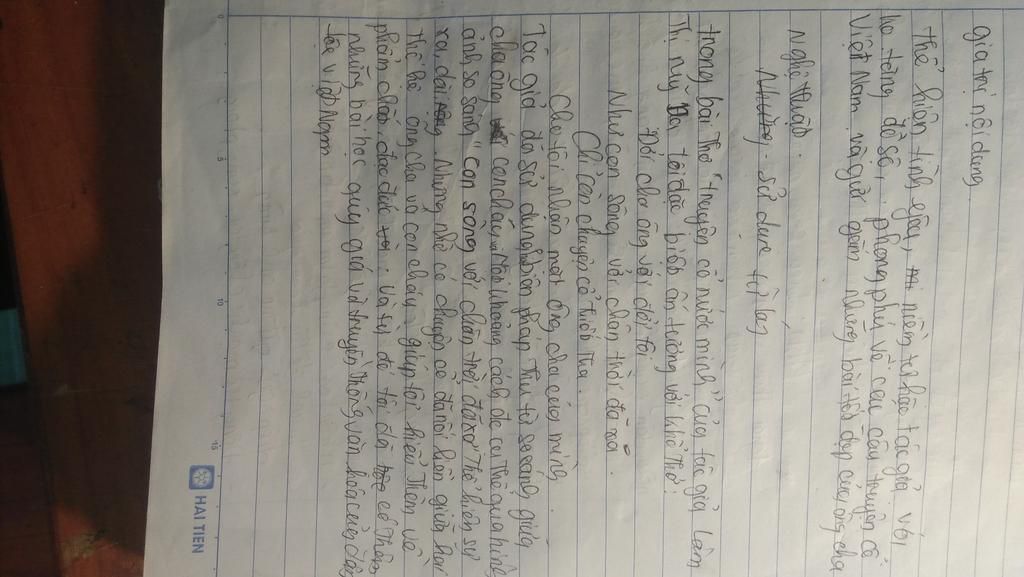 giá trị nội dung
thể hiện tình yêu, niềm tự hào tác giả với
kho tàng đồ sộ, phong phú về các câu truyện cổ
Việt Nam và giữ gìn những bài học đẹp của ông cha
Nghệ thuật.
- sử dụng từ láy
trong bài thơ "truyện cổ nước mình" của tác giả Lâm
Thị mỹ Dạ tôi đặc biệt ấn tượng với khổ thơ:
Đời cha ông với đời tôi
Như con sông với chân trời đã xa
Chỉ còn chuyện cổ thiết tha
Cho tôi nhận mặt ông cha của mình
Tác giả đã sử dụng biện pháp tu từ so sánh, giữa
cha ông con cháu, khoảng cách đó cụ thể qua hình
ảnh so sáng "con sông với chân trời đã xa" thể hiện sự
ra, dài Nhưng nhờ có chuyện cổ đã nối liền giữa hai
thế hệ ông cha và con cháu, giúp tôi hiểu thêm về
phẩm chất đạo đức và từ đó tôi đã có thêm
những bài học quý giá về truyền thống văn hóa của dân
tộc việt Nam
HẢI TIẾN
0
5
10
15